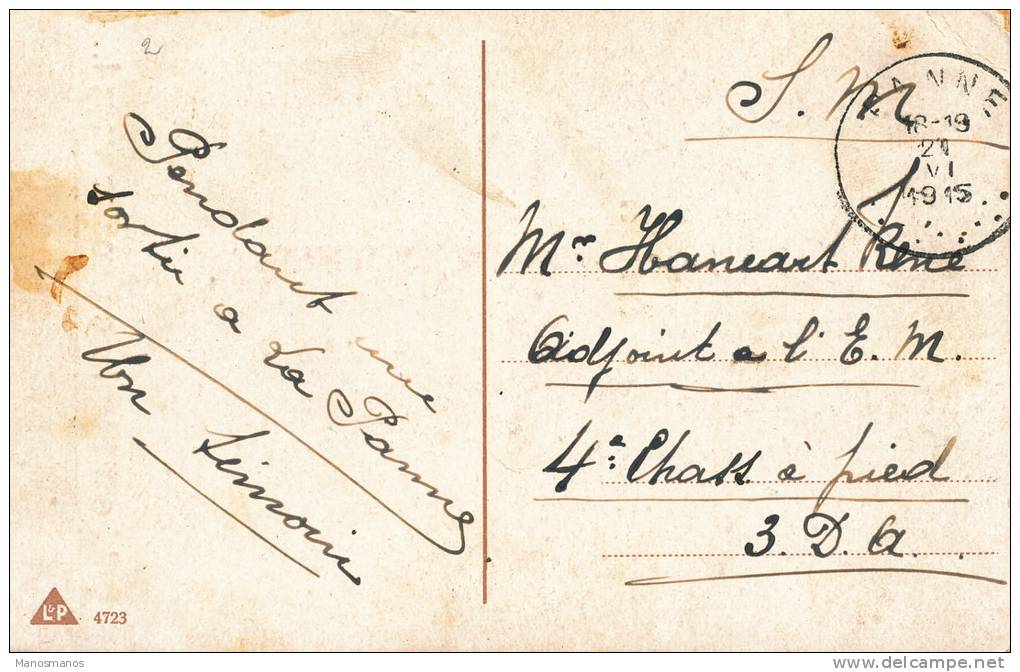 2
Pendant une
sortie a
La Panne
Bon
S. M
PANNE
18-19
21
VI
1915
Mr. Hancart René
Adjoint a l'E. M.
4e Chass à pied
3. D. A.
L&P 4723
Manosmanos
delcampe.net